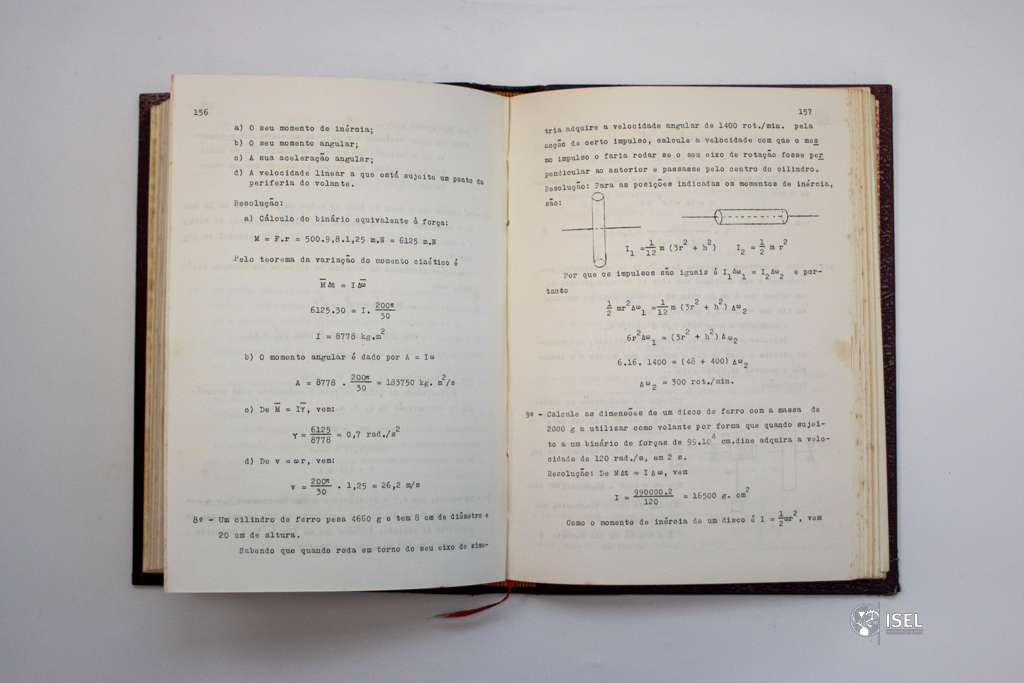 156
a) O seu momento de inércia;
b) O seu momento angular;
c) A sua aceleração angular;
d) A velocidade linear a que está sujeito um ponto da
periferia do volante.
Resolução:
a) Cálculo do binário equivalente à força:
M = F.r = 500.9,8.1,25 m.N = 6125 m.N
Pelo teorema da variação do momento cinético é
M̅Δt = I Δ̅ω̅
6125.30 = I. 200π/30
I = 8778 kg.m²
b) O momento angular é dado por A = Iω
A = 8778 . 200π/30 = 183750 kg. m²/s
c) De M̅ = IY̅, vem:
γ = 6125/8778 = 0,7 rad./s²
d) De v = ωr, vem:
v = 200π/30 . 1,25 = 26,2 m/s
8º - Um cilindro de ferro pesa 4660 g e tem 8 cm de diâmetro e
20 cm de altura.
Sabendo que quando roda em torno do seu eixo de sime-
157
tria adquire a velocidade angular de 1400 rot./min. pela
acção de certo impulso, calcule a velocidade com que o mes
mo impulso o faria rodar se o seu eixo de rotação fosse per
pendicular ao anterior e passasse pelo centro do cilindro.
Resolução: Para as posições indicadas os momentos de inércia,
são:
I₁ = 1/12 m (3r² + h²) I₂ = 1/2 m r²
Por que os impulsos são iguais é I₁Δω₁ = I₂Δω₂ e por-
tanto
1/2 mr²Δω₁ = 1/12 m (3r² + h²) Δω₂
6r²Δω₁ = (3r² + h²) Δω₂
6.16. 1400 = (48 + 400) Δω₂
Δω₂ = 300 rot./min.
9º - Calcule as dimensões de um disco de ferro com a massa de
2000 g a utilizar como volante por forma que quando sujei-
to a um binário de forças de 99.10⁴ cm.dine adquira a velo-
cidade de 120 rad./s, em 2 s.
Resolução: De MΔt = I Δω, vem
I = 990000.2/120 = 16500 g. cm²
Como o momento de inércia de um disco é I = 1/2 mr², vem
ISEL